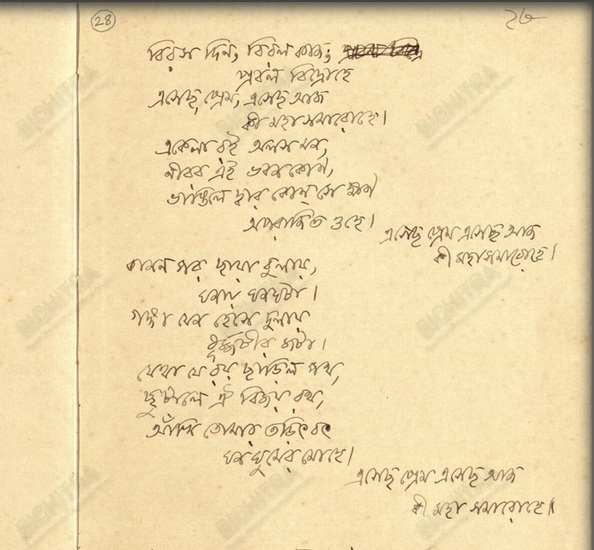 28
বিরস দিন, বিরল কাজ,
প্রবল বিদ্রোহে
এসেছ প্রেম, এসেছ আজ
কী মহা সমারোহে।
একেলা রই অলস মন,
নীরব এই ভবন কোণ,
ভাঙিলে দ্বার কোন্ সে ক্ষণ
অপরাজিত ওহে।
এসেছ প্রেম এসেছ আজ
কী মহা সমারোহে।
কানন পর ছায়া বুলায়,
ঘনায় ঘনঘটা।
গঙ্গা যেন হেসে দুলায়
ধূর্জ্জটীর জটা।
যেথা যে রয় ছাড়িল পথ,
ছুটালে ঐ বিজয় রথ,
আঁখি তোমার তড়িৎবৎ
ঘন ঘুমের মোহে।
এসেছ প্রেম এসেছ আজ
কী মহা সমারোহে॥
BICHITRA